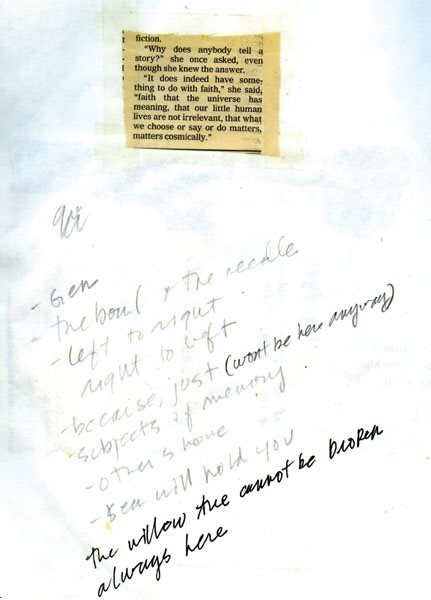 fiction.
"Why does anybody tell a
story?" she once asked, even
though she knew the answer.
"It does indeed have some-
thing to do with faith," she said,
"faith that the universe has
meaning, that our little human
lives are not irrelevant, that what
we choose or say or do matters,
matters cosmically."
- Gen
- the bowl & the needle
- left to right
right to left
- because, just (won't be here anyway)
- subjects of memory
- other's home
- sea will hold you
the willow tree cannot be broken
always here